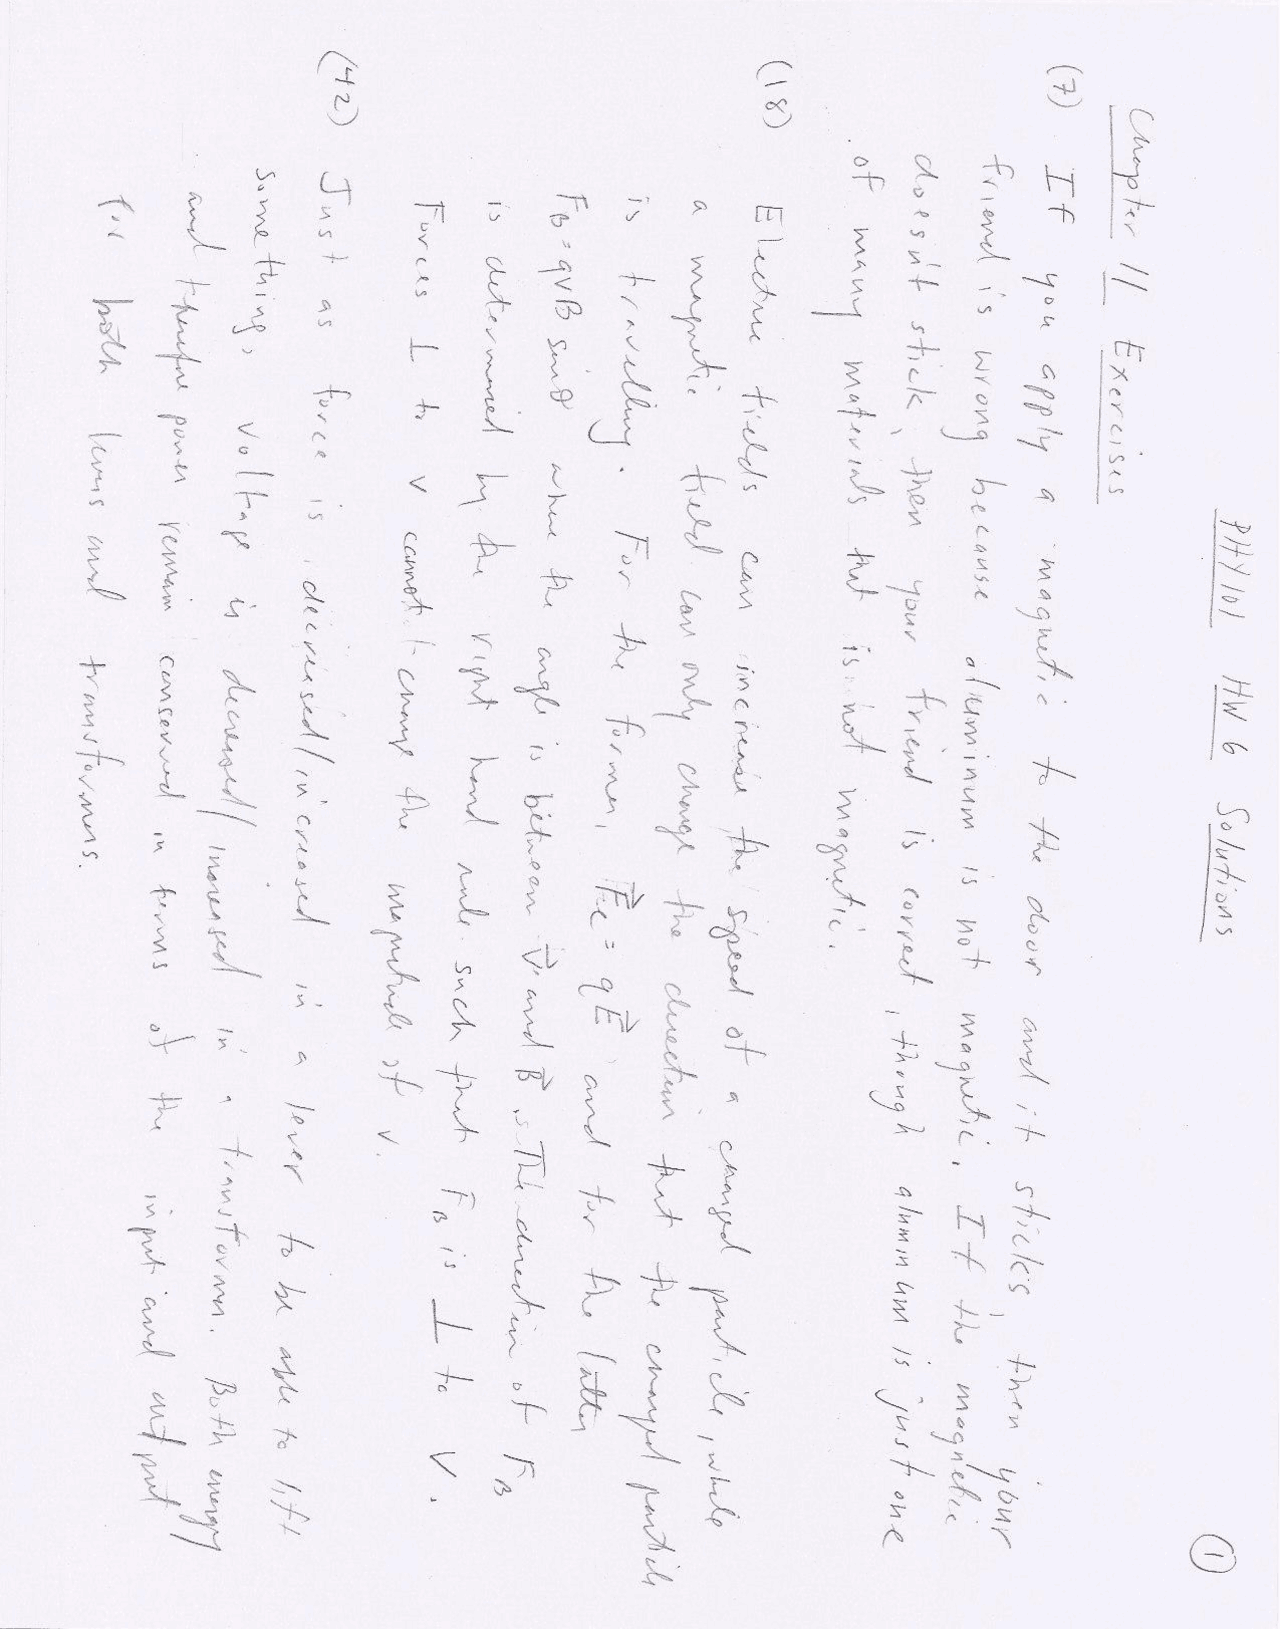 ①
PHY101 HW 6 Solutions
Chapter 11 Exercises
(7) If you apply a magnetic to the door and it sticks, then your
friend is wrong because aluminum is not magnetic. If the magnetic
doesn't stick, then your friend is correct, though aluminum is just one
of many materials that is not magnetic.
(18) Electric fields can increase the speed of a charged particle, while
a magnetic field can only change the direction that the charged particle
is travelling. For the former, F⃗e = qE⃗ and for the latter
F_B = qvB sinθ where the angle is between v⃗ and B⃗. The direction of F_B
is determined by the right hand rule such that F_B is ⊥ to v.
Forces ⊥ to v cannot change the magnitude of v.
(42) Just as force is decreased/increased in a lever to be able to lift
something, voltage is decreased/increased in a transformer. Both energy
and therefore power remain conserved in terms of the input and output
for both levers and transformers.